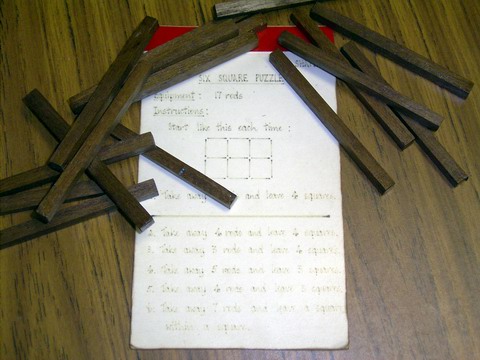 SIX SQUARE PUZZLE
Equipment : 17 rods
Instructions :
Start like this each time :
Take away and leave 4 square.
2. Take away 4 rods and leave 4 square.
3. Take away 3 rods and leave 4 square.
4. Take away 5 rods and leave 3 square.
5. Take away 4 rods and leave 3 square.
6. Take away 7 rods and leave a square
within a square.